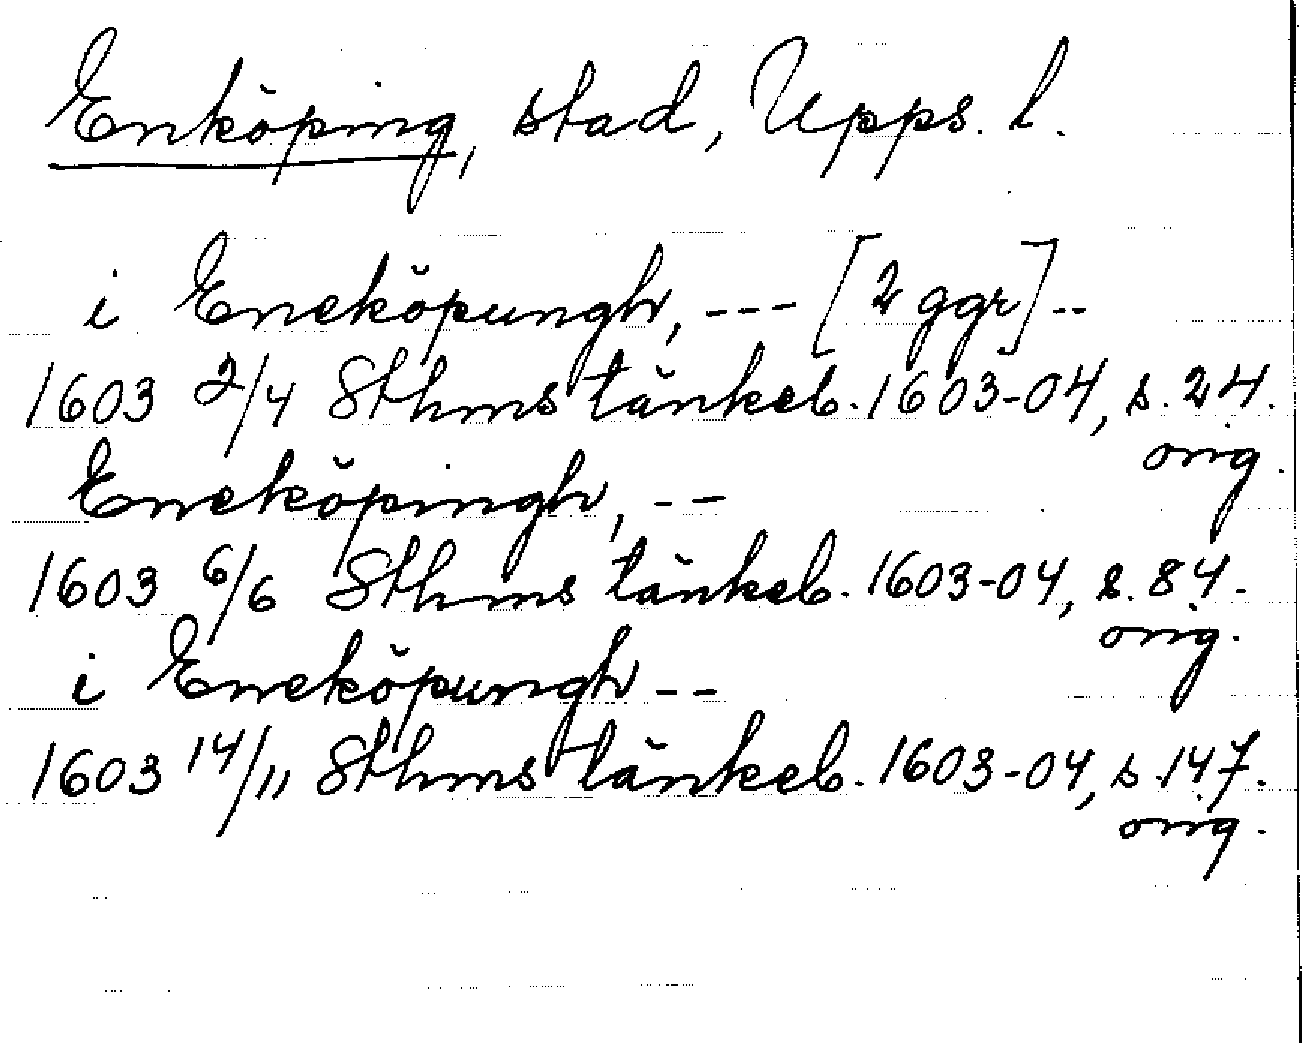 Enköping, stad, Upps. l.
i Eneköpungh, --- [2 ggr] --
1603 2/4 Sthms tänkeb. 1603-04, s. 24.
orig.
Eneköpingh, --
1603 6/6 Sthms tänkeb. 1603-04, s. 84.
orig.
i Eneköpungh --
1603 14/11 Sthms tänkeb. 1603-04, s. 147.
orig.